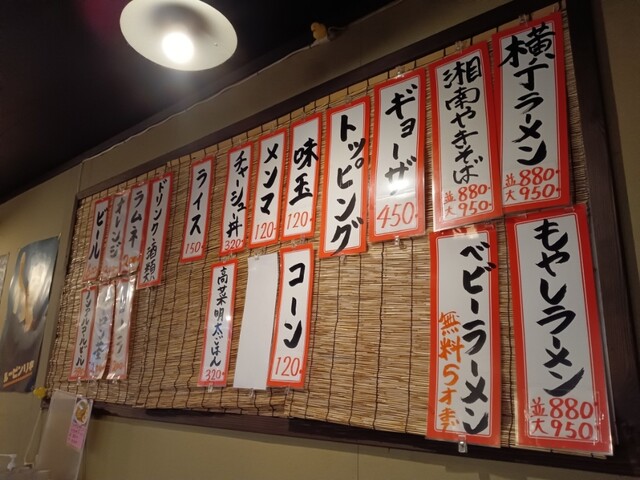 横丁ラーメン
並 880.
大 950.
湘南やきそば
並 880.
大 950.
ギョーザ
450.
トッピング
味玉
120.
メンマ
120.
チャーシュー丼
320.
ライス
150.
ドリンク・酒類
ラムネ
オレンジ
ビール
もやしラーメン
並 880.
大 950.
ベビーラーメン
無料 5才まで
コーン
120.
高菜明太ごはん
320.